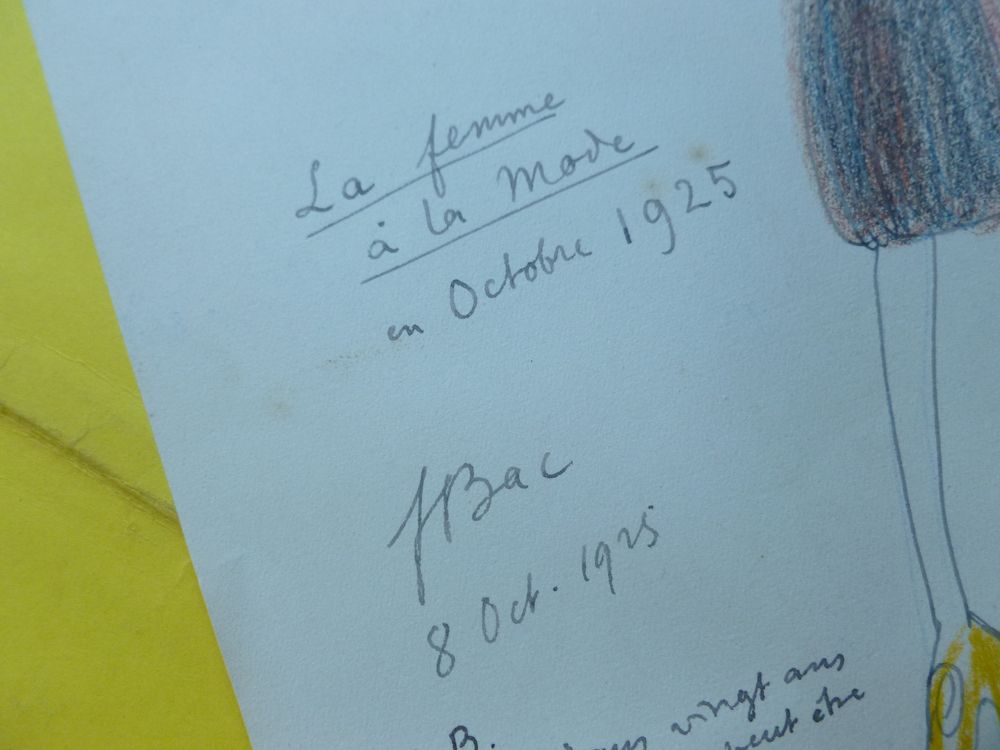 La femme
à la Mode
en Octobre 1925
JBac
8 Oct. 1925
B. vingt ans
peut être